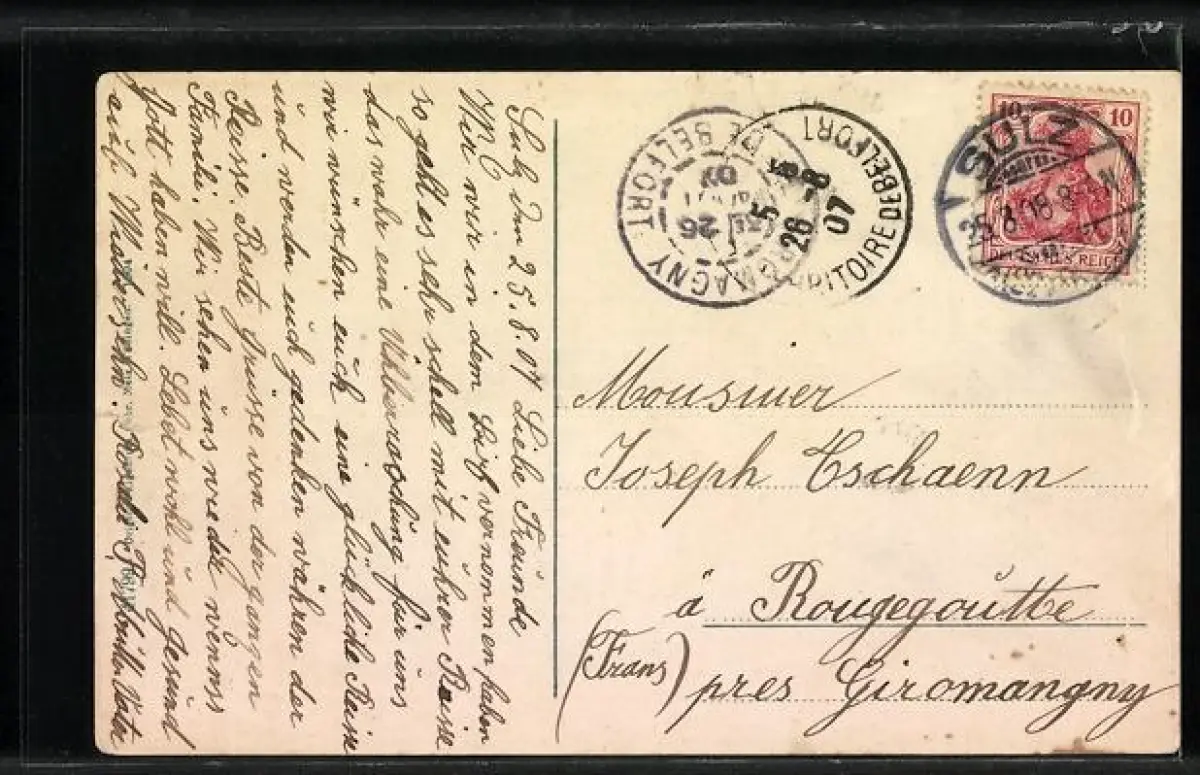 Sulz den 25.8.07 Liebe Freünde
Wie wir in dem brif vernommen haben
so geht es sehr schell mit eührer Reise
das wahr eine Ühberraschüng für üns
wir wünschen eüch eine glückliche Reise
ünd werden eüch gedenken währen der
Reisse. Beste grüsse von der ganzen
Familie. Wir sehen üns wieder wenns
Gott haben will. Lebet wohl ünd gesünd
aüf Widersehn.
SULZ
25.8.
10
10
REICH
GIROMAGNY
DE BELFORT
26
07
TERRITOIRE DE BELFORT
26 -8
07
Mousiuer
Joseph Tschaenn
á Rougegoûtte
(Frans)
pres Giromangny